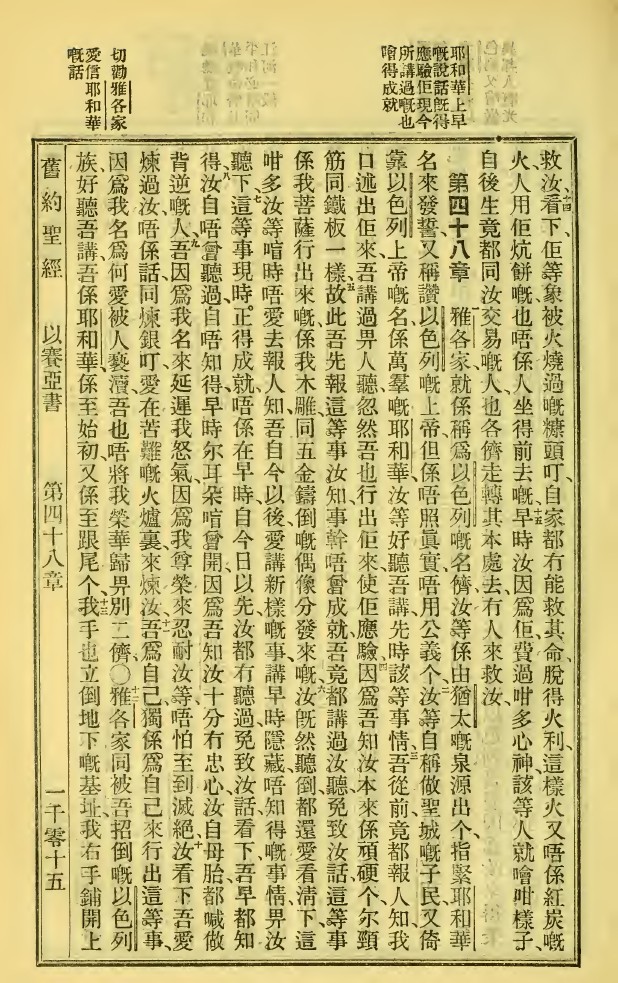 耶和華上早
嘅說話旣得
應驗佢現今
所講過嘅也
噲得成就
切勸雅各家
愛信耶和華
嘅話
救汝看下佢等象被火燒過嘅糠頭叮自家都冇能救其命脫得火利這樣火又唔係紅炭嘅
十四
火人用佢炕餅嘅也唔係人坐得前去嘅早時汝因爲佢費過咁多心神該等人就噲咁樣子
十五
自後生竟都同汝交易嘅人也各儕走轉其本處去冇人來救汝
第四十八章 雅各家就係稱爲以色列嘅名儕汝等係由猶太嘅泉源出个指緊耶和華
名來發誓又稱讚以色列嘅上帝但係唔照眞實唔用公義个汝等自稱做聖城嘅子民又倚
二
靠以色列上帝嘅名係萬羣嘅耶和華汝等好聽吾講先時該等事情吾從前竟都報人知我
三
口述出佢來吾講過畀人聽忽然吾也行出佢來使佢應驗因爲吾知汝本來係頑硬个尔頸
四
筋同鐵板一樣故此吾先報這等事汝知事幹唔曾成就吾竟都講過汝聽免致汝話這等事
五
係我菩薩行出來嘅係我木雕同五金鑄倒嘅偶像分發來嘅汝旣然聽倒都還愛看淸下這
六
咁多汝等喑時唔愛去報人知吾自今以後愛講新樣嘅事講早時隱藏唔知得嘅事情畀汝
聽下這等事現時正得成就唔係在早時自今日以先汝都冇聽過免致汝話看下吾早都知
七
得汝自唔曾聽過自唔知得早時尔耳朶喑曾開因爲吾知汝十分冇忠心汝自母胎都喊做
八
背逆嘅人吾因爲我名來延遲我怒氣因爲我尊榮來忍耐汝等唔怕至到滅絕汝看下吾愛
九
十
煉過汝唔係話同煉銀叮愛在苦難嘅火爐裏來煉汝吾爲自己獨係爲自己來行出這等事
十一
因爲我名爲何愛被人褻瀆吾也唔將我榮華歸畀別二儕〇雅各家同被吾招倒嘅以色列
十二
族好聽吾講吾係耶和華係至始初又係至跟尾个我手也立倒地下嘅基址我右手鋪開上
十三
舊約聖經 以賽亞書 第四十八章 一千零十五